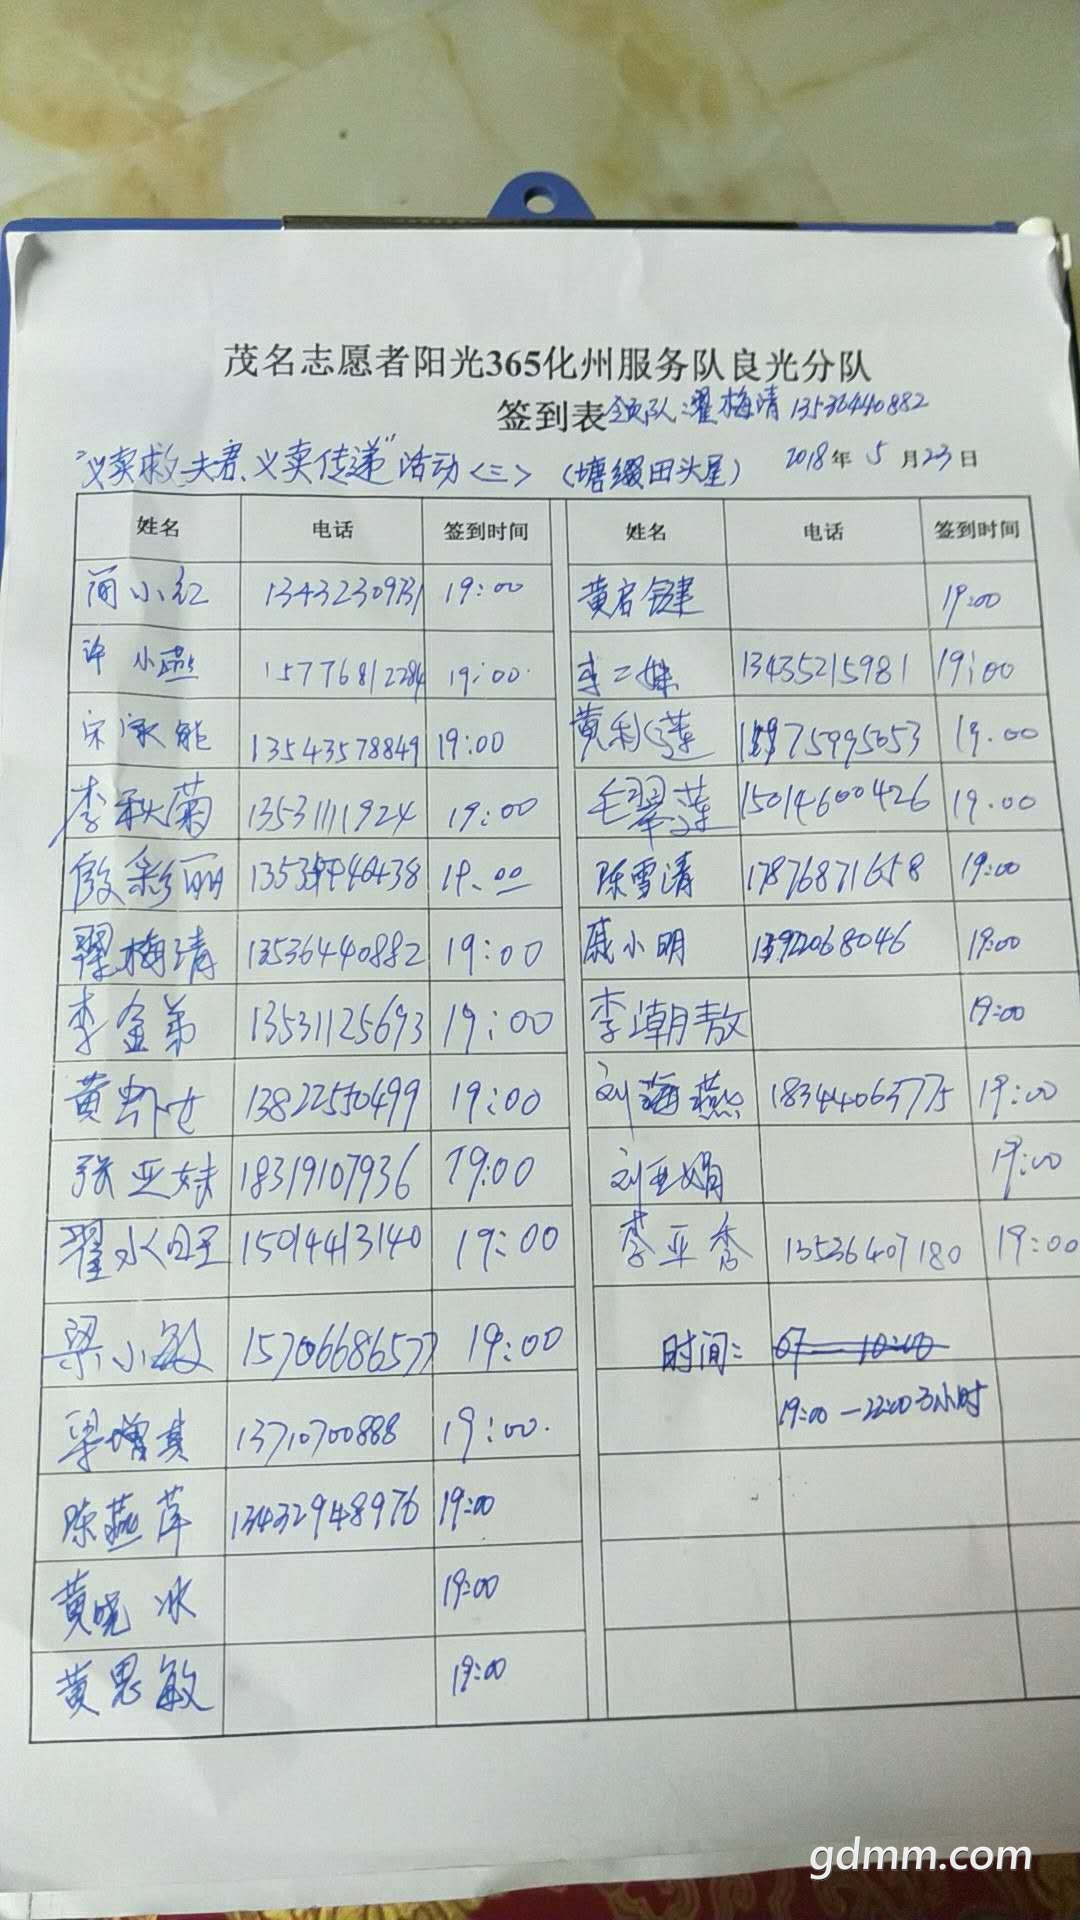 茂名志愿者阳光365化州服务队良光分队
签到表 领队:翟梅清 13536440882
"义卖救夫君、义卖传递"活动<三> (塘㙍田头屋) 2018年5月23日
姓名 电话 签到时间 姓名 电话 签到时间
简小红 13432309731 19:00 黄启健 19:00
许小燕 15776812284 19:00 李二妹 13435215981 19:00
宋永能 13543578849 19:00 黄利莲 75995053 19.00
李秋菊 13531111924 19:00 毛翠莲 15014600426 19.00
彩丽 19.00 陈雪清 17876871658 19:00
翟梅清 13536440882 19:00 戚小明 19:00
李金弟 13531125693 19:00 李潮敖 19:00
黄 13822550499 19:00 刘海燕 18344065775 19:00
张亚妹 18319107936 19:00 刘亚娟 19:00
翟水旺 15014413140 19:00 李亚秀 13536407180 19:00
梁小敏 15706686577 19:00 时间:
梁增真 13710700888 19:00. 19:00—22:00 3小时
陈燕萍 13432948976 19:00
黄晓冰 19:00
黄思敏 19:00
gdmm.com